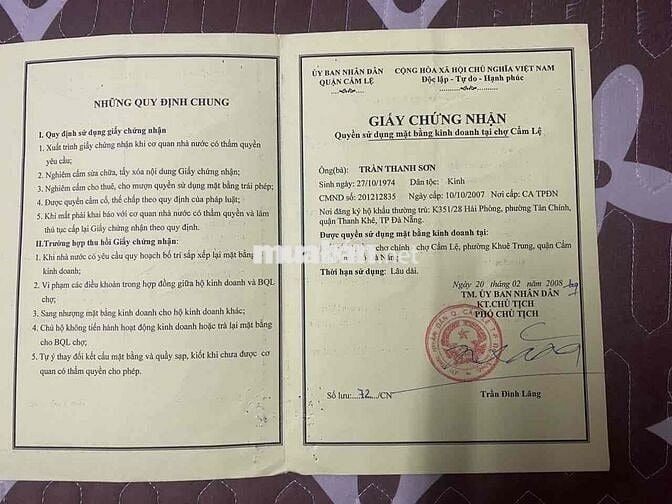 NHỮNG QUY ĐỊNH CHUNG
I. Quy định sử dụng giấy chứng nhận
1. Xuất trình giấy chứng nhận khi cơ quan nhà nước có thẩm quyền
yêu cầu;
2. Nghiêm cấm sửa chữa, tẩy xóa nội dung Giấy chứng nhận;
3. Nghiêm cấm cho thuê, cho mượn quyền sử dụng mặt bằng trái phép;
4. Được quyền cầm cố, thế chấp theo quy định của pháp luật;
5. Khi mất phải khai báo với cơ quan nhà nước có thẩm quyền và làm
thủ tục cấp lại Giấy chứng nhận theo quy định.
II. Trường hợp thu hồi Giấy chứng nhận:
1. Khi nhà nước có yêu cầu quy hoạch bố trí sắp xếp lại mặt bằng
kinh doanh;
2. Vi phạm các điều khoản trong hợp đồng giữa hộ kinh doanh và BQL
chợ;
3. Sang nhượng mặt bằng kinh doanh cho hộ kinh doanh khác;
4. Chủ hộ không tiến hành hoạt động kinh doanh hoặc trả lại mặt bằng
cho BQL chợ;
5. Tự ý thay đổi kết cấu mặt bằng và quầy sạp, kiốt khi chưa được cơ
quan có thẩm quyền cho phép.
ỦY BAN NHÂN DÂN
QUẬN CẨM LỆ
CỘNG HÒA XÃ HỘI CHỦ NGHĨA VIỆT NAM
Độc lập - Tự do - Hạnh phúc
GIẤY CHỨNG NHẬN
Quyền sử dụng mặt bằng kinh doanh tại chợ Cẩm Lệ
Ông(bà): TRẦN THANH SƠN
Sinh ngày: 27/10/1974 Dân tộc: Kinh
CMND số: 201212835 Ngày cấp: 10/10/2007 Nơi cấp: CA TPĐN
Nơi đăng ký hộ khẩu thường trú: K351/28 Hải Phòng, phường Tân Chính,
quận Thanh Khê, TP Đà Nẵng.
Được quyền sử dụng mặt bằng kinh doanh tại:
chợ chính chợ Cẩm Lệ, phường Khuê Trung, quận Cẩm
Nẵng
Thời hạn sử dụng: Lâu dài.
Ngày 20 tháng 02 năm 2008
TM. ỦY BAN NHÂN DÂN
KT.CHỦ TỊCH
PHÓ CHỦ TỊCH
Số lưu:...72.../CN
Trần Đình Lãng
muaban.net